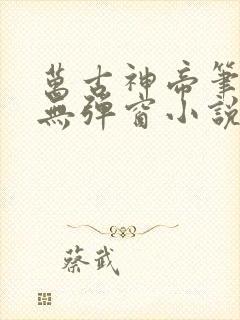 萬古神帝筆
無彈窗小說
蔡武